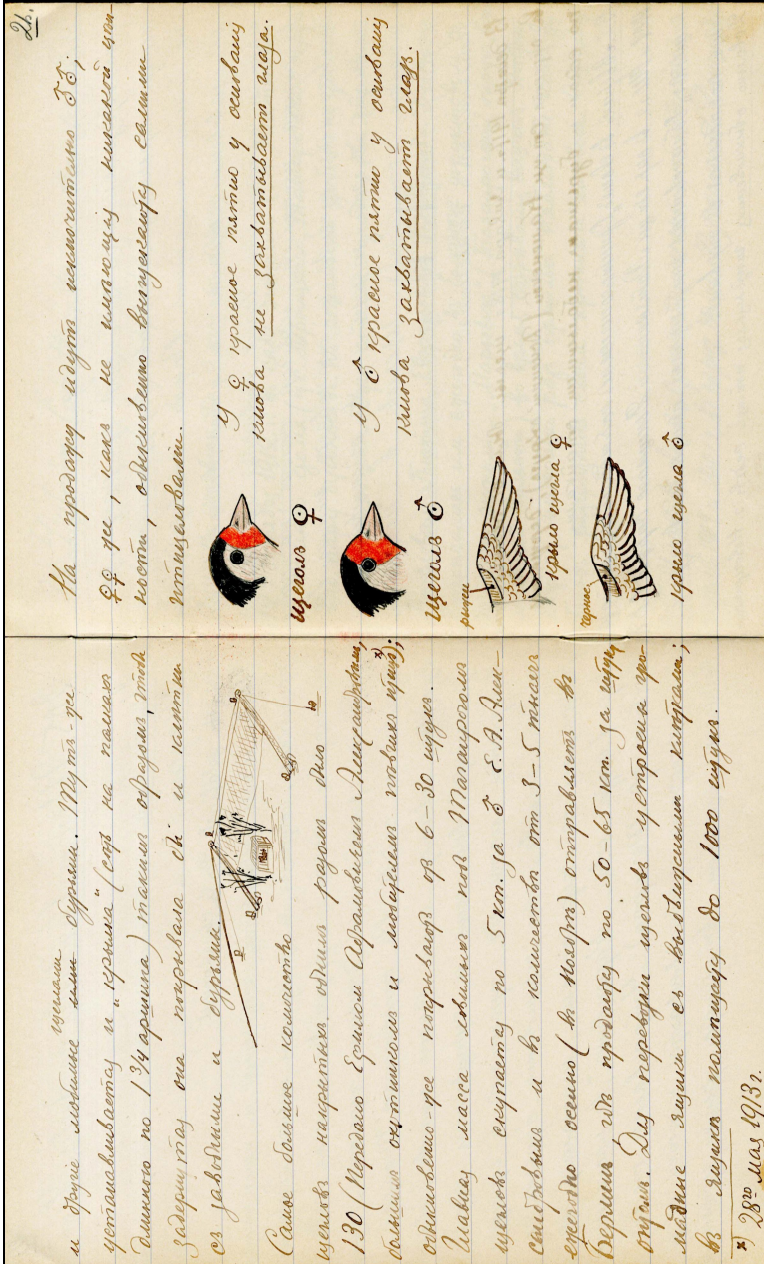 и другіе любимые щеглами бурьяны. Тутъ-же
устанавливается и „крылья“ (сѣть на палкахъ
длиною по 1¾ аршина) такимъ образомъ, чтобъ
задернутая она покрывала бы и клѣтки
съ заводными и бурьяны.
Самое большое количество
щегловъ накрытыхъ однимъ разомъ было
130 (Передано Абрамовичемъ Александровымъ,
большимъ охотникомъ и любителемъ пѣвчихъ птицъ х));
обыкновенно-же покрываютъ отъ 6-30 штукъ.
Главная масса ловимыхъ подъ Таганрогомъ
щегловъ скупается по 5 коп. за ♂ Е.А. Алек-
сандровымъ и въ количествѣ отъ 3-5 тысячъ
ежегодно осенью (въ Ноябрѣ) отправляетъ въ
Берлинъ гдѣ продаютъ по 50-65 коп. за штуку
оптомъ. Для перевозки щегловъ устроены гро-
мадные ящики съ выдвижными клѣтками;
въ ящикъ помѣщаютъ до 1000 штукъ.
х) 28го мая 1913г.
26.
На продажу идутъ исключительно ♂♂;
♀♀ же, какъ не имѣющія никакой цѣн-
ности, обыкновенно выпускаютъ самими
птицеловами.
У ♀ красное пятно у основанія
клюва не захватываетъ глаза.
щеголъ ♀
У ♂ красное пятно у основанія
клюва захватываетъ глазъ.
щеголъ ♂
рыжее
крыло щегла ♀
черное
крыло щегла ♂